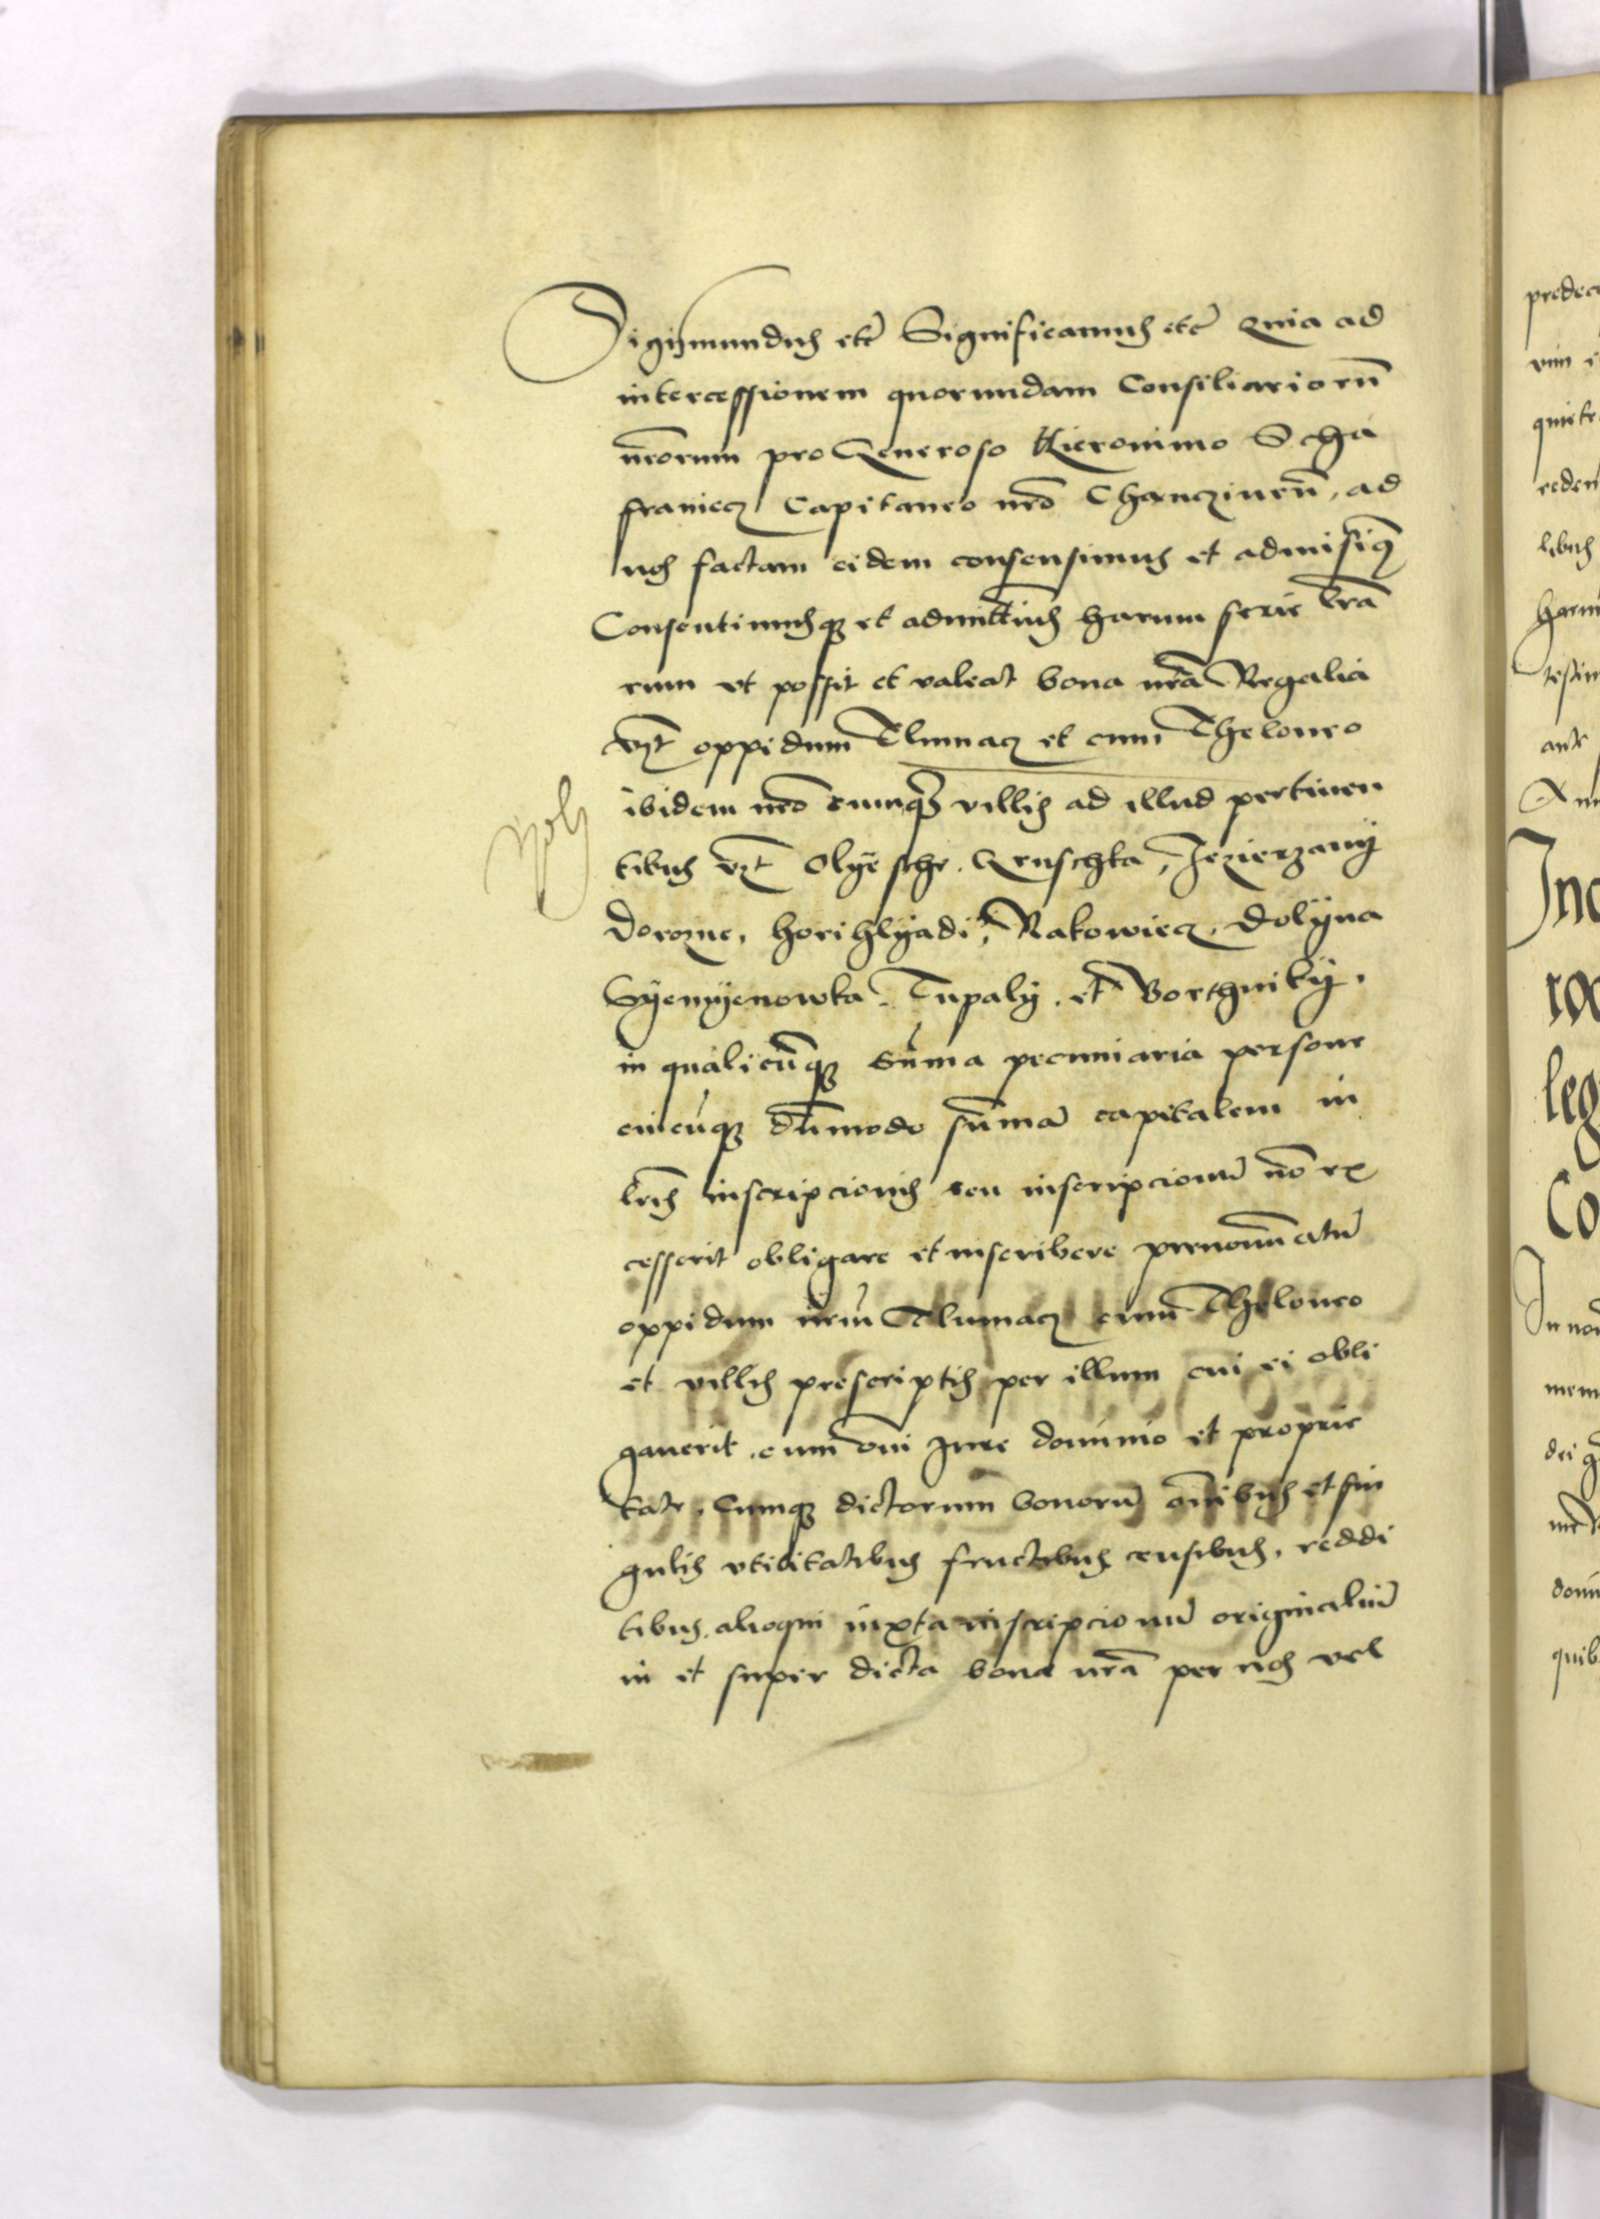 Sigismundus etc̃ Significamus etc̃ Quia ad
intercessionem quorundam Consiliariorũ
nr̃orum pro Generoso Hieronimo Scha
franiecz Capitaneo nr̃o Chanczinen̄, ad
nos factam eidem consensimus et admisiq̃
Consentimusq̃ et admittim̃us harum serie lr̃a
rum vt possit et valeat bona nr̃a Regalia
vz̃t oppidum Tlumacz et cum Theloneo
ibidem nr̃o cumq̃ȝ villis ad illud pertinen
tibus vz̃t Olyesche. Gruschka, Jezierzany
Dorozne, horihlyadi, Rakowiecz, Dolyna
Syemyenowka. Tupaly. et Borthniky.
in qualicũq̃ sũma pecuniaria persone
cuicũq̃ dũmodo sũmã capitalem in
lr̃is inscripcionis seu inscripcionũ nõ ex
cesserit obligare et inscribere prenominatũ
oppidum nr̃um Tlumacz cum Theloneo
et villis prescriptis per illum cui ei obli
gauerit. cum oñi Jure dominio et proprie
tate. Cumq̃ dictorum bonorũ oñibus et sin
gulis vtilitatibus fructibus censibus, reddi
tibus. alioqui iuxta inscripcionũ originaliũ
in et super dicta bona nr̃a per nos vel
predec
vim
quite
libus
testim
ante
Inc
leg
Co
In no
mem
dei g
quib